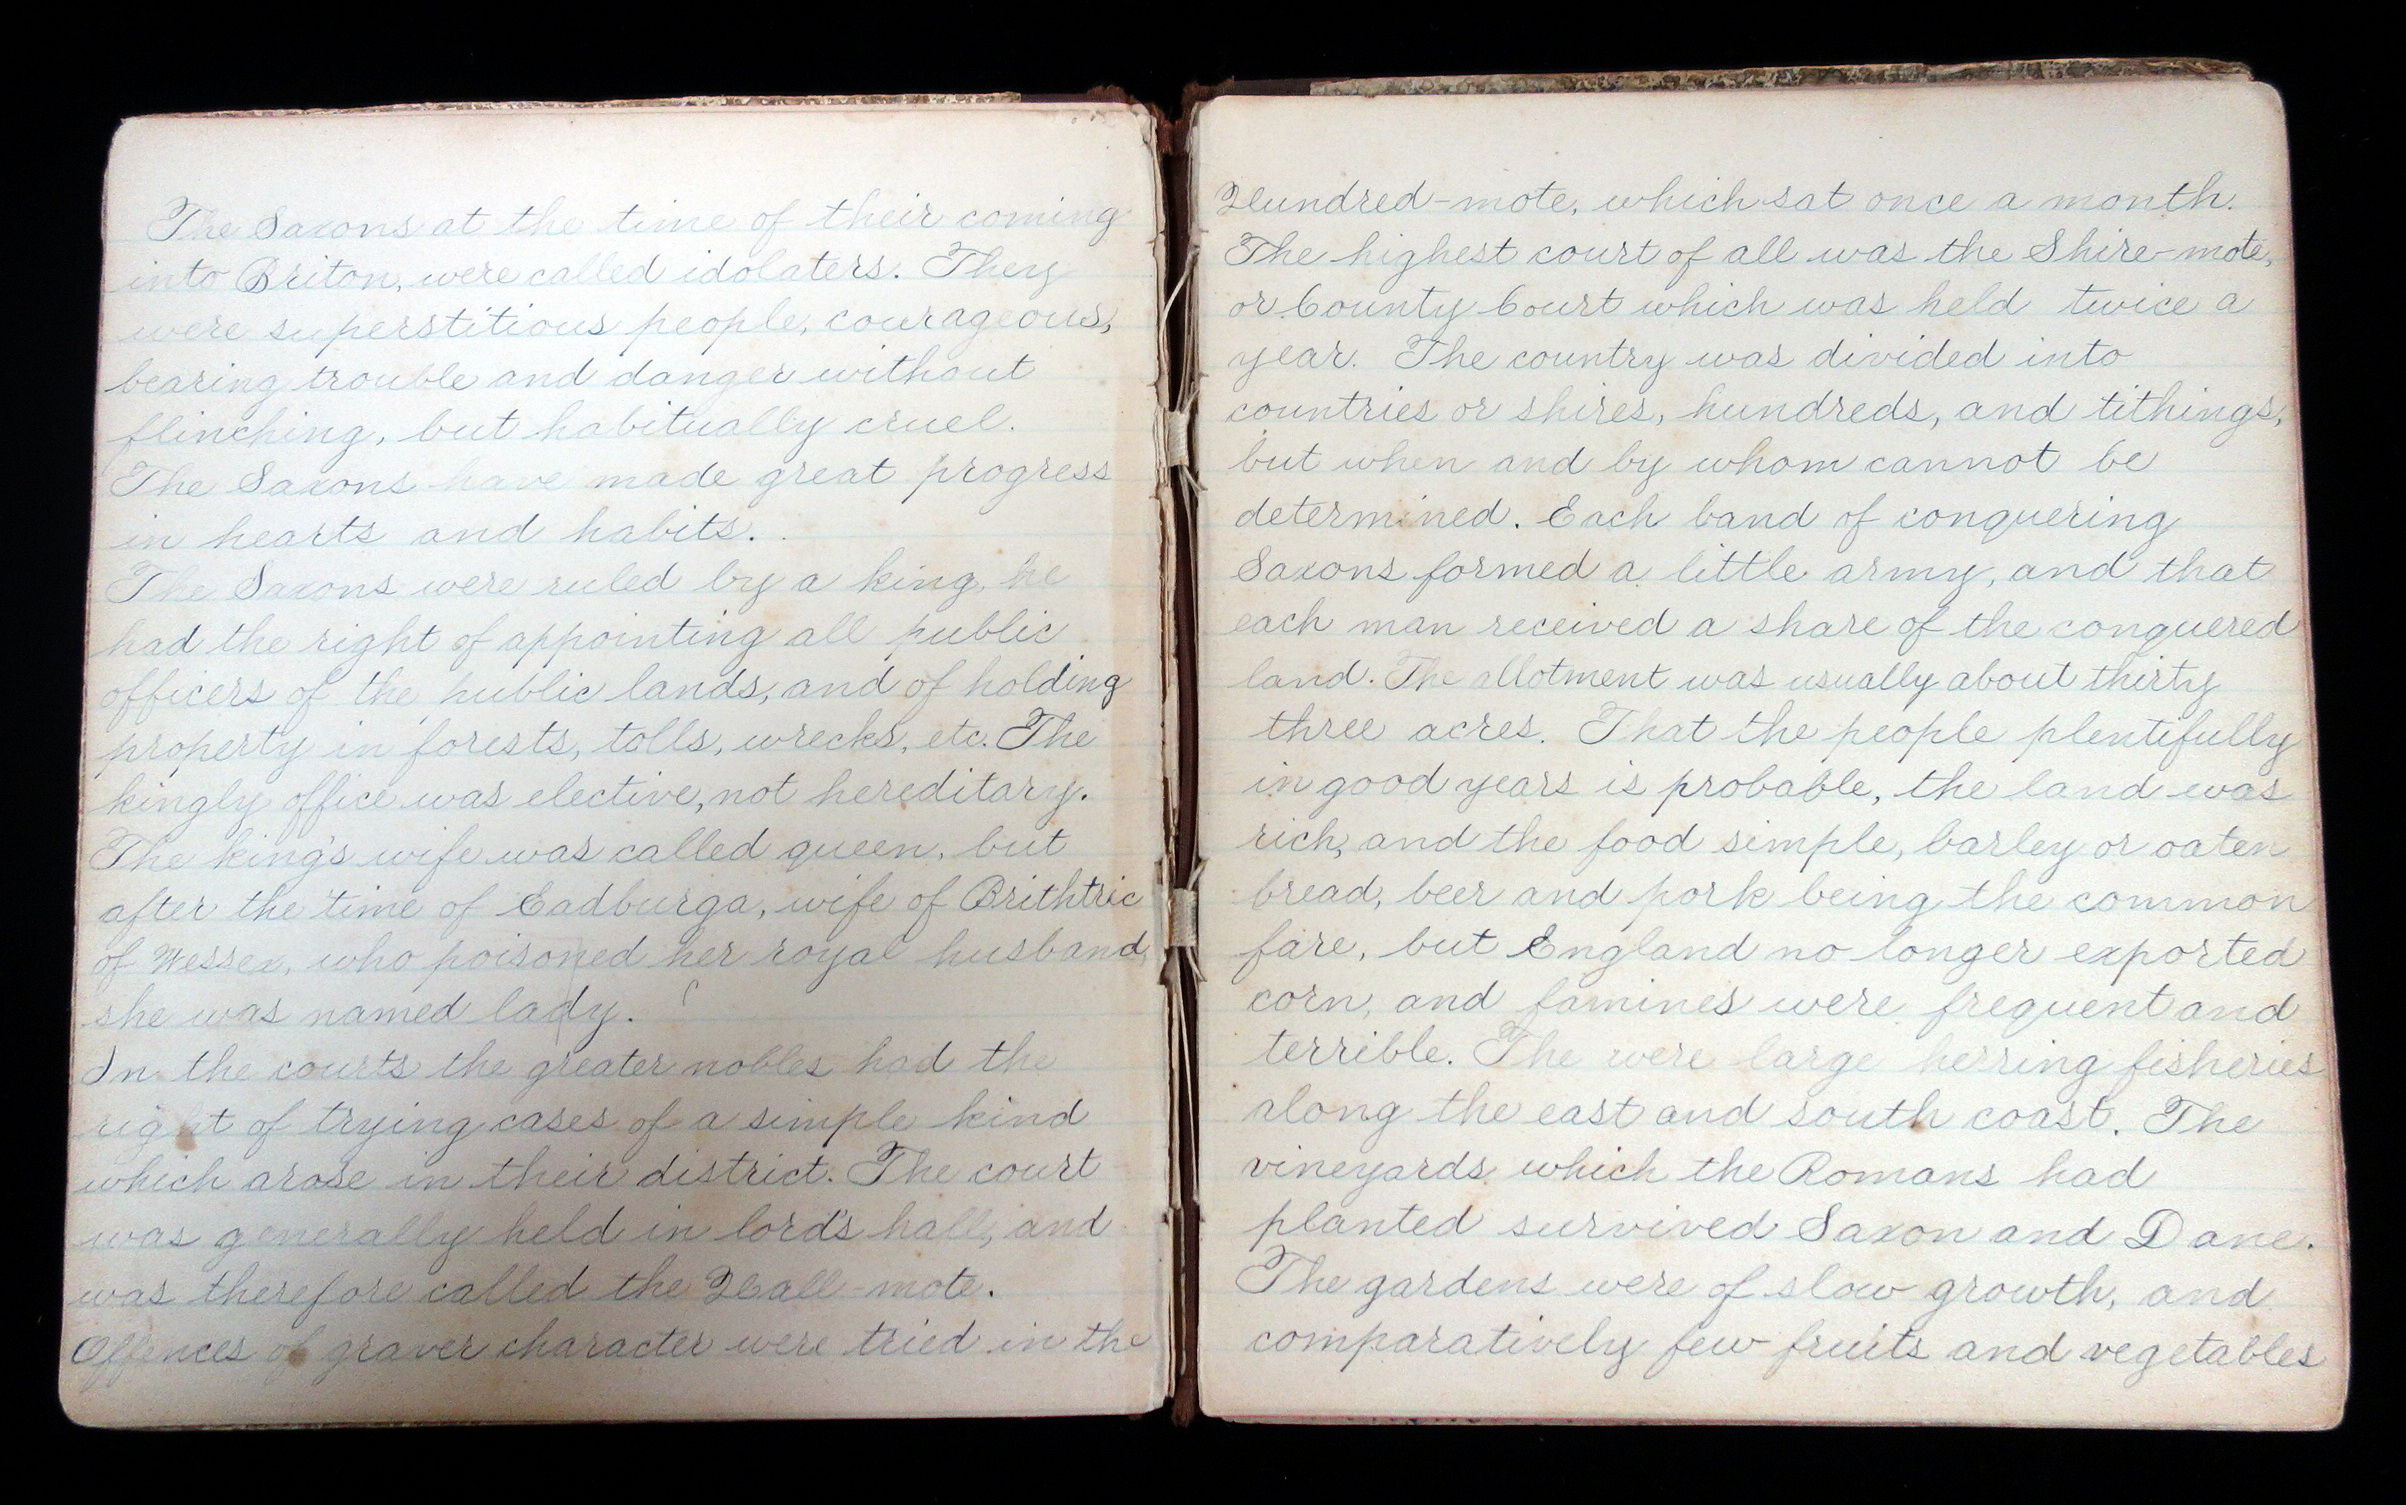 The Saxons at the time of their coming
into Briton, were called idolaters. They
were superstitious people, courageous,
bearing trouble and danger without
flinching, but habitually cruel.
The Saxons have made great progress
in hearts and habits.
The Saxons were ruled by a king, he
had the right of appointing all public
officers of the public lands, and of holding
property in forests, tolls, wrecks, etc. The
kingly office was elective, not hereditary.
The king's wife was called queen, but
after the time of Eadburga, wife of Brithtric
of Wessex, who poisoned her royal husband,
she was named lady.
In the courts the greater nobles had the
right of trying cases of a simple kind
which arose in their district. The court
was generally held in lord's hall, and
was therefore called the Hall-mote.
Offences of graver character were tried in the
Hundred-mote, which sat once a month.
The highest court of all was the Shire-mote,
or County Court which was held twice a
year. The country was divided into
countries or shires, hundreds, and tithings,
but when and by whom cannot be
determined. Each band of conquering
Saxons formed a little army, and that
each man received a share of the conquered
land. The allotment was usually about thirty
three acres. That the people plentifully
in good years is probable, the land was
rich, and the food simple, barley or oaten
bread, beer and pork being the common
fare, but England no longer exported
corn, and famines were frequent and
terrible. The were large herring fisheries
along the east and south coast. The
vineyards which the Romans had
planted survived Saxon and Dane.
The gardens were of slow growth, and
comparatively few fruits and vegetables